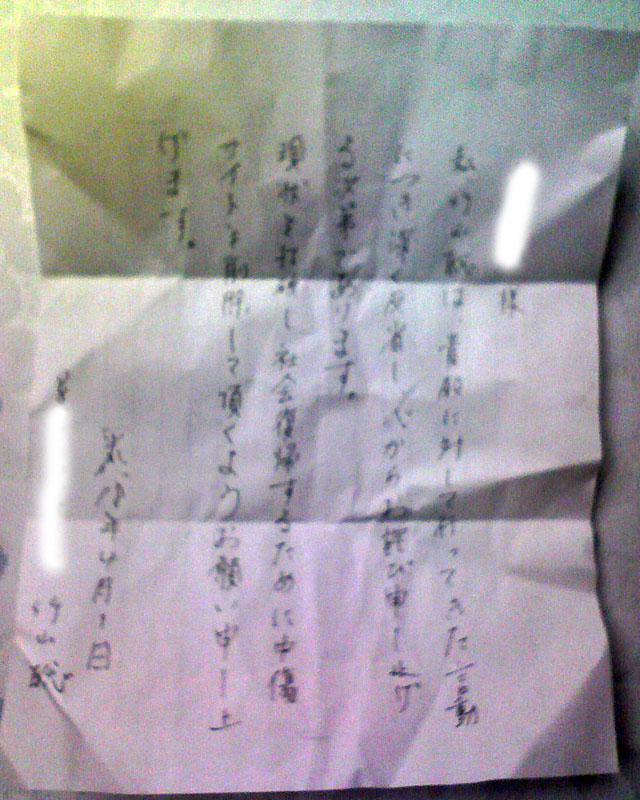 様
私竹山聡は貴殿に対して行ってきた言動
につき深く反省し心からお詫び申し上げ
る次第であります。
現状を打破し社会復帰するために中傷
サイトを削除して頂くようお願い申し上
げます。
年4月1日
竹山聡